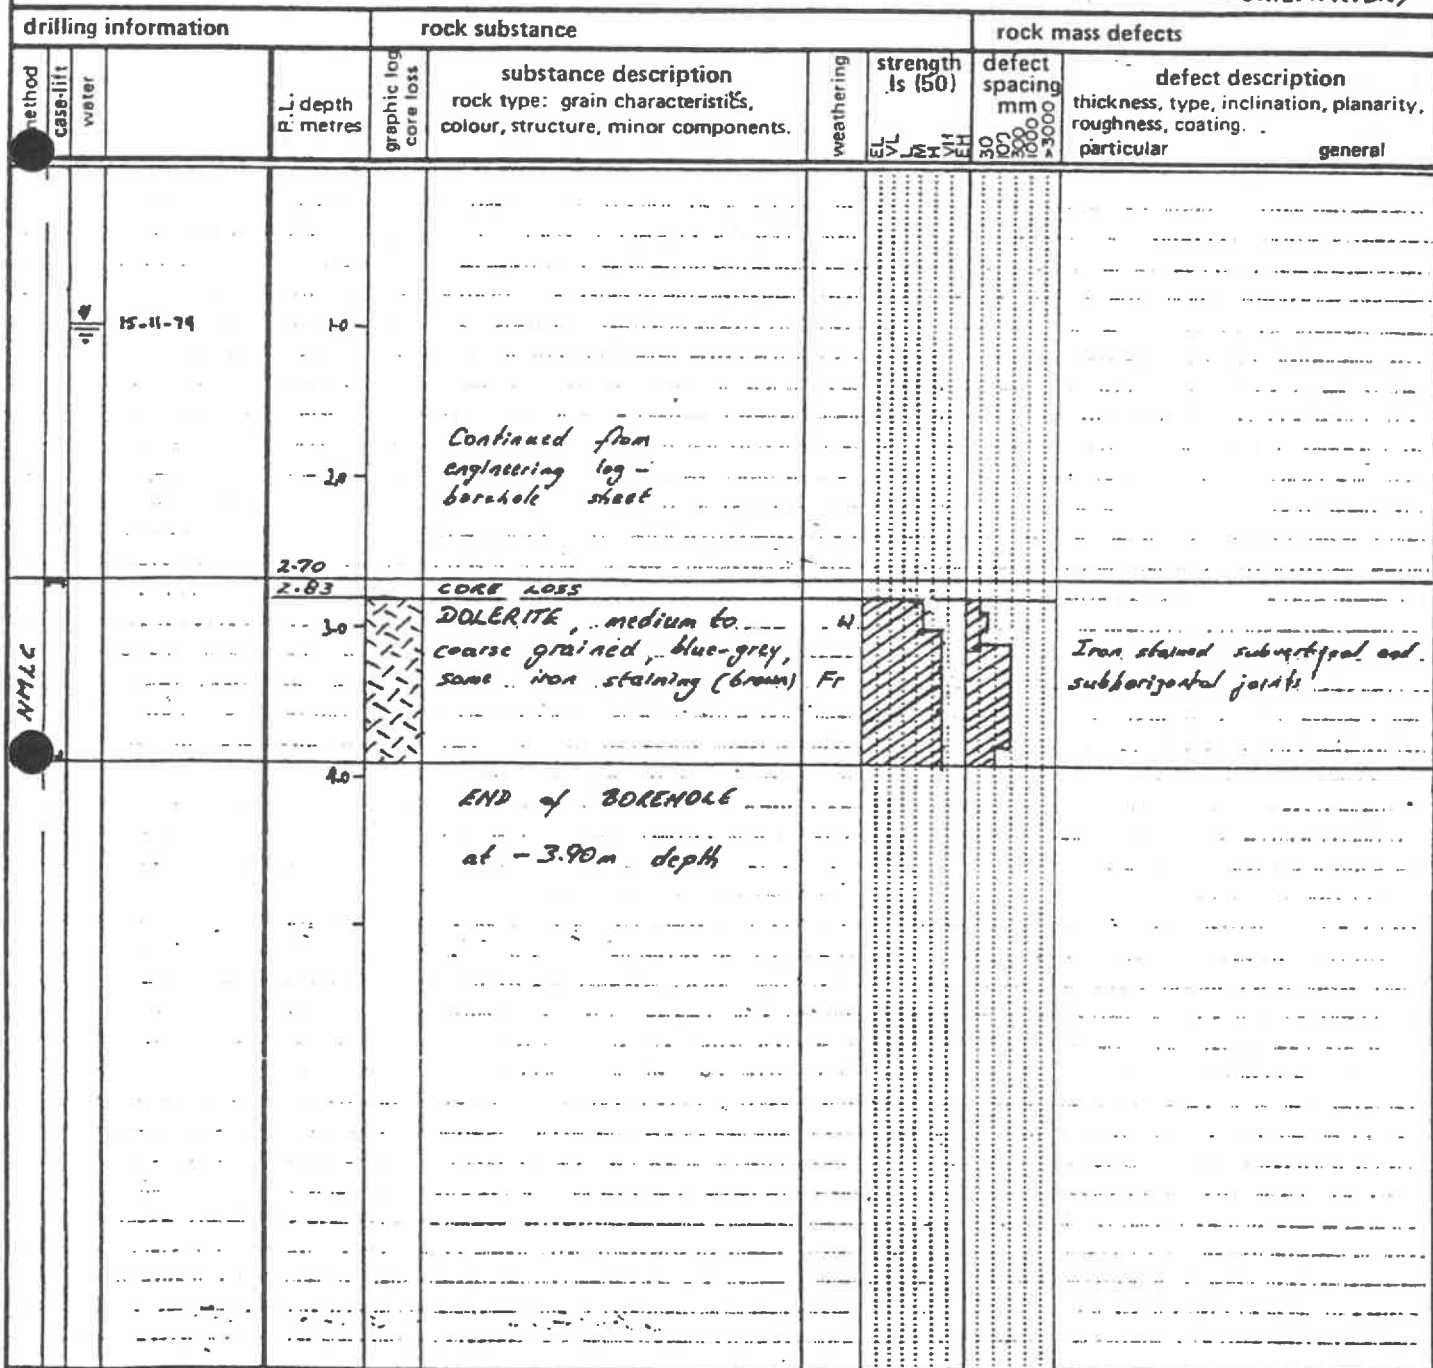 drilling information
rock substance
rock mass defects
case-lift
water
depth
metres
graphic log
core loss
substance description
rock type: grain characteristics,
colour, structure, minor components.
weathering
strength
Is (50)
EL
VL
L
M
H
VH
EH
defect
spacing
mm
30
100
300
1000
>3000
defect description
thickness, type, inclination, planarity,
roughness, coating.
particular general
15-11-79
1.0
Continued from
engineering log -
borehole sheet
2.0
2.70
2.83
CORE LOSS
3.0
DOLERITE, medium to
coarse grained, blue-grey,
some iron staining (brown)
Fr
Iron stained subvertical and
subhorizontal joints
NMLC
4.0
END of BOREHOLE
at - 3.90m depth